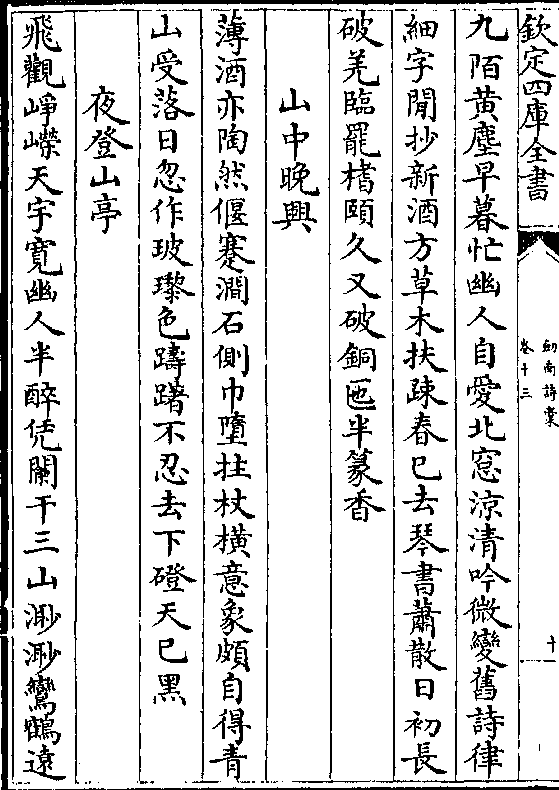 欽定四庫全書
劒南詩藁
卷十三
十
九陌黃塵早暮忙幽人自愛北窓涼清吟微變舊詩律
細字閒抄新酒方草木扶疎春已去琴書蕭散日初長
破羌臨罷榰頤久又破銅匜半篆香
山中晚興
薄酒亦陶然偃蹇澗石側巾墮拄杖橫意象頗自得青
山受落日忽作玻瓈色躊躇不忍去下磴天已黑
夜登山亭
飛觀崢嶸天宇寬幽人半醉凭闌干三山渺渺鸞鶴遠